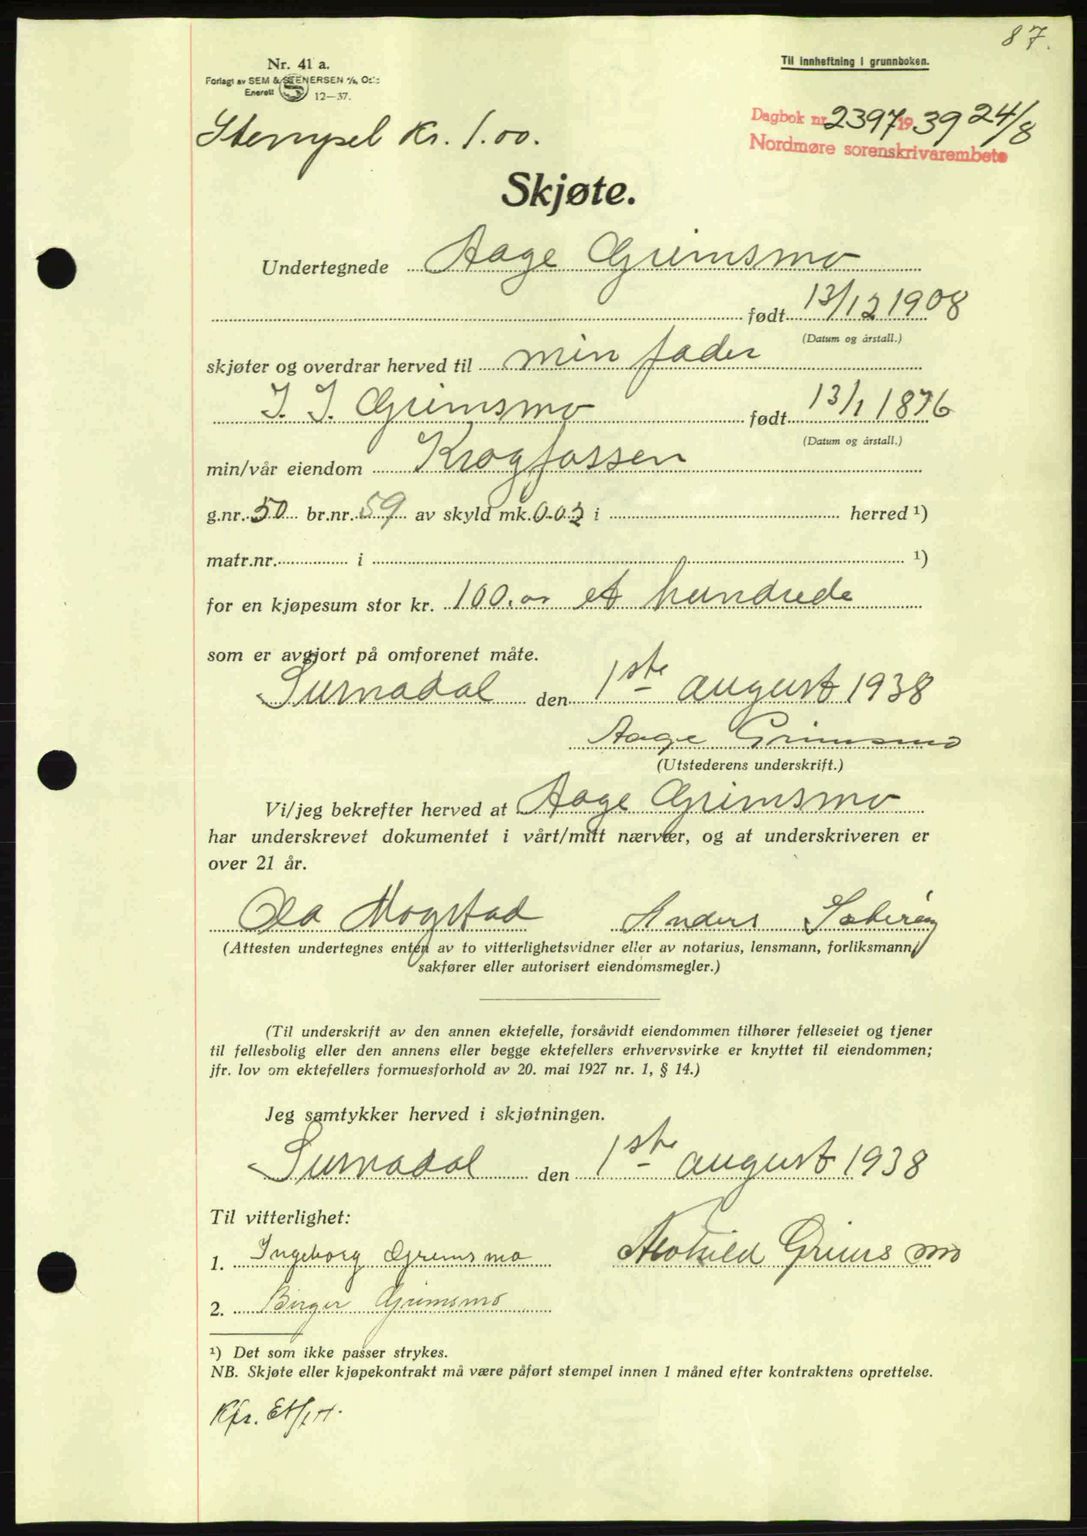 87.
Nr. 41 a.
Forlagt av SEM & STENERSEN A/S, Oslo
Enerett 12—37.
Til innheftning i grunnboken.
Stempel Kr. 1.00.
Dagbok nr. 2397 1939 24/8
Nordmøre sorenskrivarembete
Skjøte.
Undertegnede Aage Grimsmo
født 13/12 1908
(Datum og årstall.)
skjøter og overdrar herved til min fader
J. J. Grimsmo født 13/1 1876
(Datum og årstall.)
min/vår eiendom Krogfossen
g.nr. 50 br.nr. 59 av skyld mk. 0.02 i herred ¹)
matr.nr. i ¹)
for en kjøpesum stor kr. 100.00 et hundrede
som er avgjort på omforenet måte.
Surnadal den 1ste august 1938
Aage Grimsmo
(Utstederens underskrift.)
Vi/jeg bekrefter herved at Aage Grimsmo
har underskrevet dokumentet i vårt/mitt nærvær, og at underskriveren er
over 21 år.
Ola Mogstad Anders Sæterøy
(Attesten undertegnes enten av to vitterlighetsvidner eller av notarius, lensmann, forliksmann,
sakfører eller autorisert eiendomsmegler.)
(Til underskrift av den annen ektefelle, forsåvidt eiendommen tilhører felleseiet og tjener
til fellesbolig eller den annens eller begge ektefellers erhvervsvirke er knyttet til eiendommen;
jfr. lov om ektefellers formuesforhold av 20. mai 1927 nr. 1, § 14.)
Jeg samtykker herved i skjøtningen.
Surnadal den 1ste august 1938
Til vitterlighet:
1. Ingeborg Grimsmo Grimsmo
2. Birger Grimsmo
¹) Det som ikke passer strykes.
NB. Skjøte eller kjøpekontrakt må være påført stempel innen 1 måned efter kontraktens oprettelse.
Kfr.